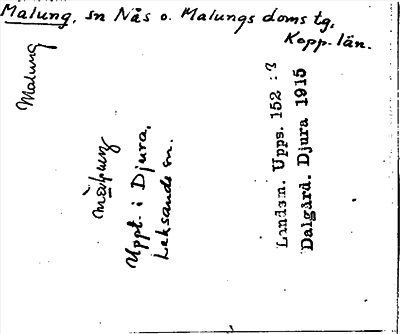 Malung, sn Nås o. Malungs doms tg,
Kopp. län.
Malung
Uppt. i Djura,
Leksands sn.
Landsm. Upps. 152 : 3
Dalgård. Djura 1915